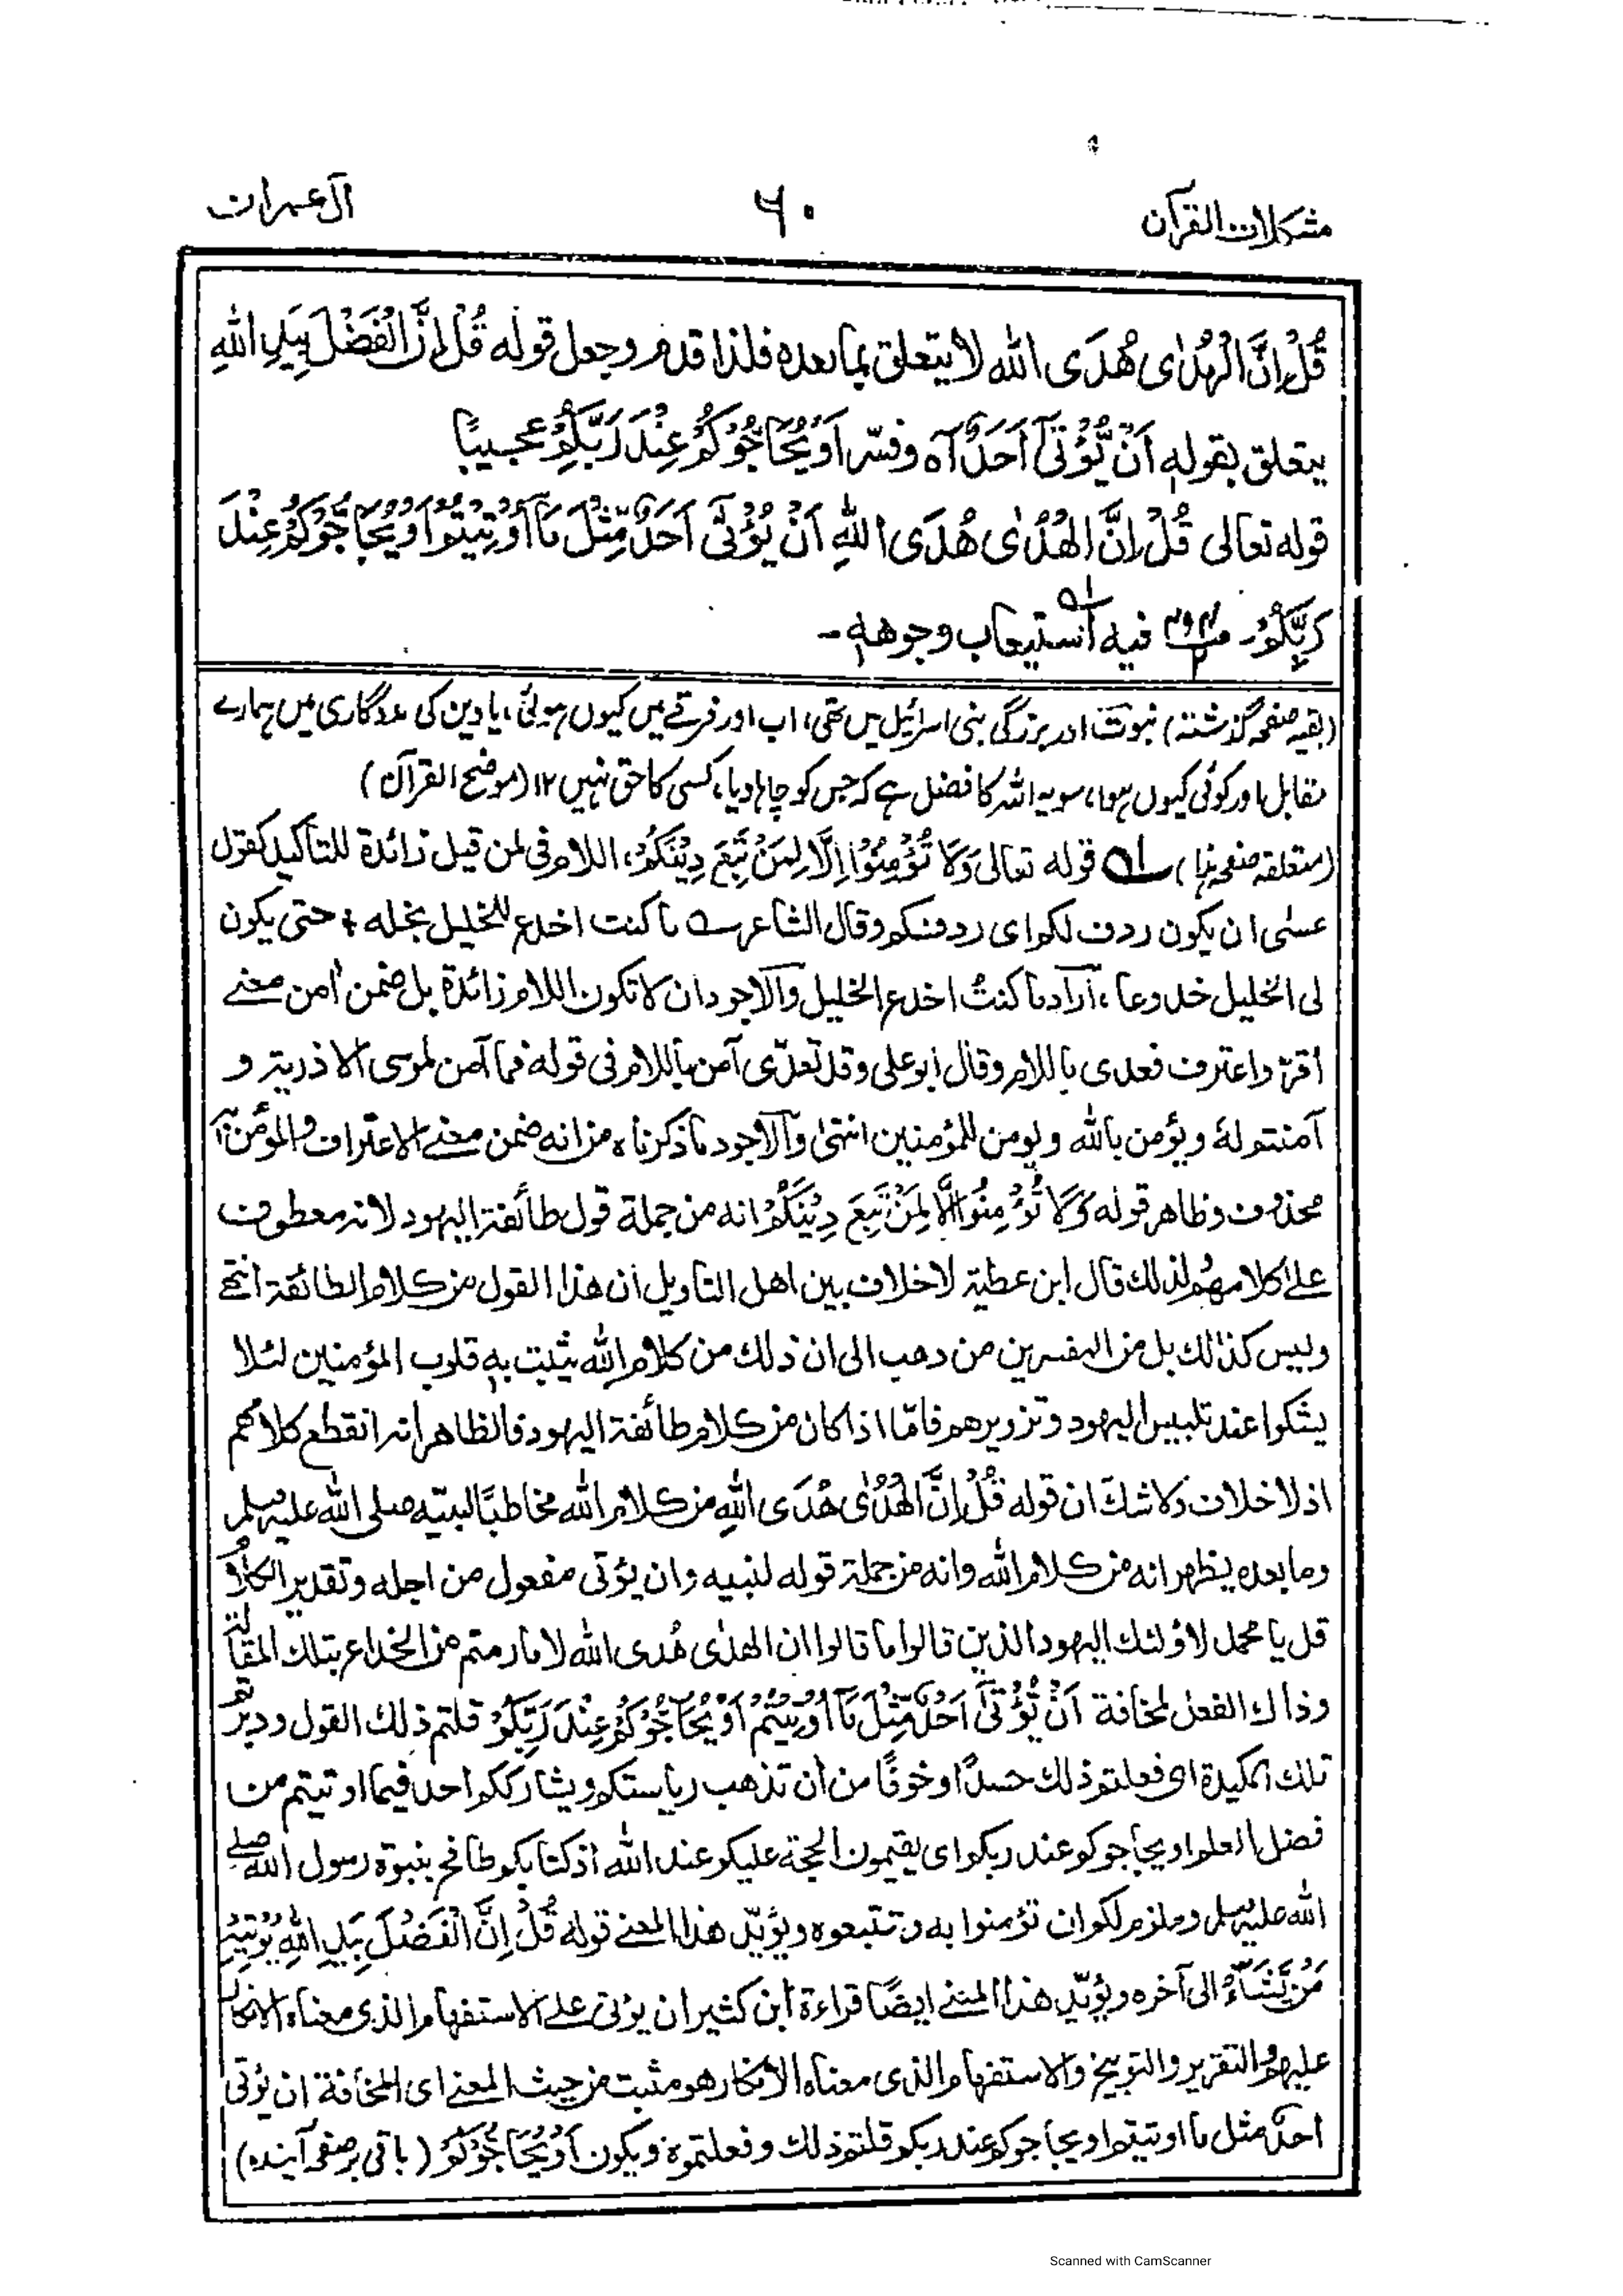 مشكلات القرآن
٦٠
آل عمران
قُلْ اِنَّ الْهُدٰى هُدَى الله لا يتعلق بما بعده فلذا قدم وجعل قوله قُلْ اِنَّ الْفَضْلَ بِيَدِ اللهِ
يتعلق بقوله اَنْ يُّؤْتٰى اَحَدٌ آه وفسّر اَوْ يُحَآجُّوْكُمْ عِنْدَ رَبِّكُمْ عجيبًا
قوله تعالى قُلْ اِنَّ الْهُدٰى هُدَى اللهِ اَنْ يُؤْتٰى اَحَدٌ مِّثْلَ مَا اُوْتِيْتُمْ اَوْ يُحَآجُّوْكُمْ عِنْدَ
رَبِّكُمْ۔ فيه استيعاب وجوهه۔
(بقیہ صفحہ گذشتہ) نبوت اور بزرگی بنی اسرائیل میں تھی، اب اور فرقے میں کیوں ہوئی، یا دین کی مددگاری میں ہمارے
مقابل اور کوئی کیوں ہوا، سو یہ اللہ کا فضل ہے کہ جس کو چاہا دیا، کسی کا حق نہیں ١٢ (موضح القرآن)
(متعلقہ صفحہ ہذا) لہ قوله تعالى وَلَا تُؤْمِنُوْا اِلَّا لِمَنْ تَبِعَ دِيْنَكُمْ، اللام فى لمن قيل زائدة للتأكيد كقول
عسٰى ان يكون ردف لكم اى ردفكم وقال الشاعر ؎ ما كنت اخدع للخليل بخله ٭ حتى يكون
لى الخليل خدوعا، أراد ما كنتُ اخدع الخليل والأجود ان لا تكون اللام زائدة بل ضمن اٰمن معنے
أقرّ واعترف فعدى باللام وقال أبو على وقد تعدّى آمن باللام فى قوله فما آمن لموسى الا ذرية و
آمنتم لهٗ ويؤمن بالله ويؤمن للمؤمنين انتهىٰ والأجود ما ذكرناه من انه ضمن معنے الاعتراف والمؤمن به
محذوف وظاهر قوله وَلَا تُؤْمِنُوْا اِلَّا لِمَنْ تَبِعَ دِيْنَكُمْ انه من جملة قول طائفة اليهود لانه معطوف
علے كلامهم ولذلك قال ابن عطية لا خلاف بين اهل التاويل أن هذا القول من كلام الطائفة انتهے
وليس كذالك بل من المفسرين من ذهب الى ان ذلك من كلام الله يثبت به قلوب المؤمنين لئلا
يشكوا عند تلبيس اليهود وتزويرهم فامّا اذا كان من كلام طائفة اليهود فالظاهر انه انقطع كلامهم
اذ لا خلاف ولا شك ان قوله قُلْ اِنَّ الْهُدٰى هُدَى اللهِ من كلام الله مخاطبًا لنبيّه صلى الله عليه وسلم
وما بعده يظهر انه من كلام الله وانه من جملة قوله لنبيه وان يؤتى مفعول من اجله وتقدير الكلام
قل يا محمد لاولئك اليهود الذين قالوا ما قالوا ان الهدٰى هُدى الله لا ما رمتم من الخداع بتلك المقالة
وذاك الفعل لمخافة اَنْ يُّؤْتٰى اَحَدٌ مِّثْلَ مَا اُوْتِيْتُمْ اَوْ يُحَآجُّوْكُمْ عِنْدَ رَبِّكُمْ قلتم ذلك القول ودبرتم
تلك المكيدة اى فعلتم ذلك حسدًا وخوفًا من ان تذهب رياستكم ويشارككم احد فيما اوتيتم من
فضل العلم او يحاجوكم عند ربكم اى يقيمون الحجة عليكم عند الله اذ كتابكم طافح بنبوة رسول الله صلے
الله عليه وسلم وملزم لكم ان تؤمنوا به وتتبعوه ويؤيّد هذا المعنے قوله قُلْ اِنَّ الْفَضْلَ بِيَدِ اللهِ يُؤْتِيْهِ
مَنْ يَّشَآءُ الى آخره ويؤيّد هذا المعنے ايضًا قراءة ابن كثير ان يؤتى علے الاستفهام الذى معناه الانكار
عليهم والتقرير والتوبيخ والاستفهام الذى معناه الانكار هو مثبت من حيث المعنے اى المخافة ان يؤتى
احدٌ مثل ما اوتيتم او يحاجوكم عند ربكم قلتم ذلك وفعلتموه ويكون اَوْ يُحَآجُّوْكُمْ (باقی برصفحہ آیندہ)
Scanned with CamScanner